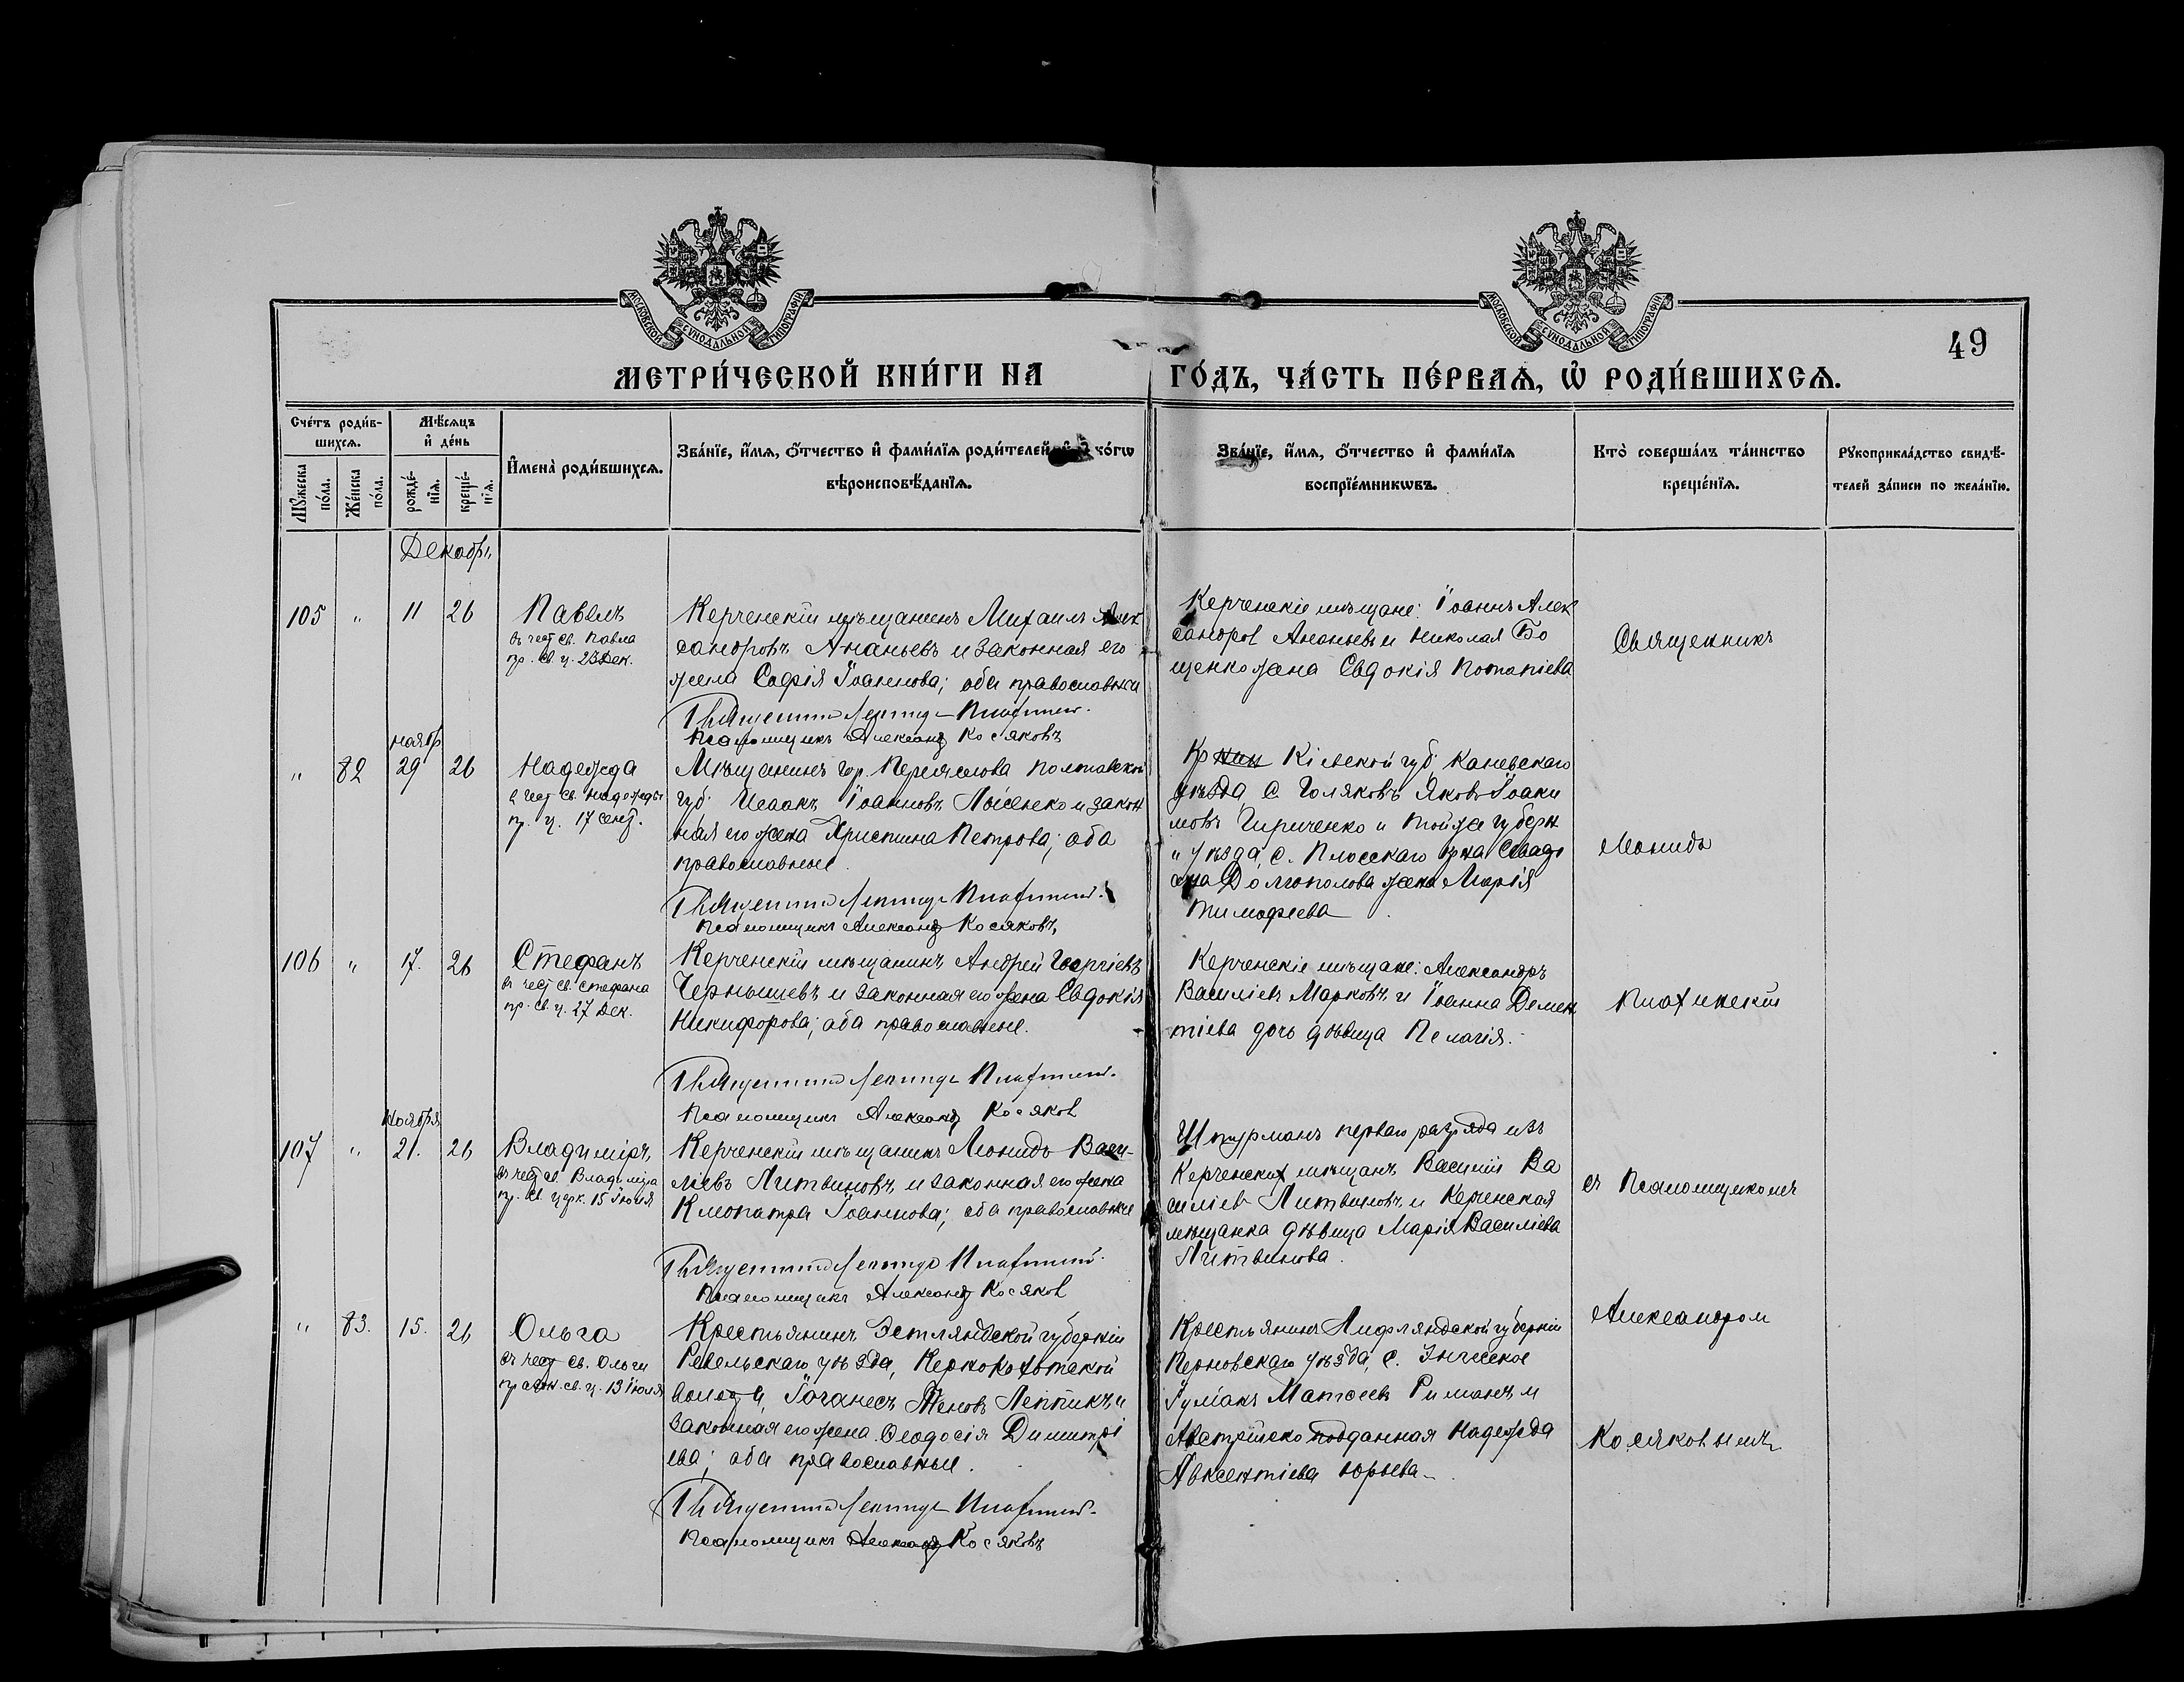 49
МЕТРИ́ЧЕСКОЙ КНИ́ГИ НА ГО́ДЪ, ЧА́СТЬ ПЕ́РВАѦ, Ѡ҆ РОДИ́ВШИХСѦ.
МОСКОВСКОЙ СѴНОДАЛЬНОЙ ТИПОГРАФІИ
МОСКОВСКОЙ СѴНОДАЛЬНОЙ ТИПОГРАФІИ
Сче́тъ роди́в-
шихсѧ.
Мꙋ́жеска
по́ла.
Же́нска
по́ла.
Мѣ́сѧцъ
и҆ де́нь
рожде́-
нїѧ.
креще́-
нїѧ.
И҆мена̀ роди́вшихсѧ.
Зва́нїе, и҆́мѧ, ѻ҆́тчество и҆ фами́лїѧ роди́телей, и҆ ко́гѡ
вѣроисповѣ́данїѧ.
Зва́нїе, и҆́мѧ, ѻ҆́тчество и҆ фами́лїѧ
воспрїе́мникѡвъ.
Кто̀ соверша́лъ та́инство
креще́нїѧ.
Рꙋкоприкла́дство свидѣ́-
телей за́писи по жела́нїю.
Декабрь
105 " 11 26
Павелъ
въ чест св. Павла
пр. св. ц. 23 Дек.
Керченскій мѣщанинъ Михаилъ Алек
сандровъ Ананьевъ и законная его
жена Софія Іоаннова; оба православные
Священникъ Леонидъ
Псаломщикъ Александ Косяковъ
Керченскіе мѣщане: Іоаннъ Алек
сандров Ананьевъ и Николая Бо
щенко жена Евдокія Потапіева
Священникъ
ноябр
" 82 29 26
Надежда
в чест св. Надежды
пр. ц. 17 сент.
Мѣщанинъ гор. Переяслова Полтавской
губ. Исаакъ Іоанновъ Лысенко и закон
ная его жена Христина Петрова; оба
православные
Священникъ Леонидъ
Псаломщикъ Александ Косяковъ
Кр Кіевской губ. Каневскаго
уѣзда, с. Голяковъ Яковъ Іоаки
мовъ Гириченко и той же губерн
" уѣзда, с. Плосскаго
Долгополова жена Марія
Тимофеева
Леонидъ
106 " 17. 26
Стефанъ
въ чест св. Стефана
пр. св. ц. 27 Дек.
Керченскій мѣщанинъ Андрей Георгіевъ
Чернышевъ и законная его жена Евдокія
Никифорова; оба православные.
Священникъ Леонидъ
Псаломщикъ Александ Косяков
Керченскіе мѣщане: Александръ
Василіевъ Марковъ и Іоанна Демен
тіева дочь дѣвица Пелагія.
Ноября
107 " 21. 26
Владиміръ
въ чест св. Владиміра
пр. св. церк. 15 Іюля
Керченскій мѣщанинъ Леонидъ Васи-
ліевъ Литвиновъ и законная его жена
Клеопатра Іоаннова; оба православные
Священникъ Леонидъ
Псаломщикъ Александ Косяков
Штурманъ перваго разряда изъ
Керченских мѣщанъ Василій Ва
силіев Литвиновъ и Керченская
мѣщанка дѣвица Марія Василіева
Литвинова.
съ Псаломщикомъ
" 83. 15. 26
Ольга
въ чест св. Ольги
св. ц. 13 Іюля
Крестьянинъ Эстляндской губерніи
Ревельскаго уѣзда,
Іоганесъ Леппикъ и
законная его жена Ѳеодосія Димитрі
ева; оба православные.
Священникъ Леонидъ
Псаломщикъ Александ Косяковъ
Крестьянинъ Лифляндской губерніи
Перновскаго уѣзда, с.
Матвеевъ Риманъ и
Австрійско подданная Надежда
Авксентіева Юрьева
Александром
Косяковымъ